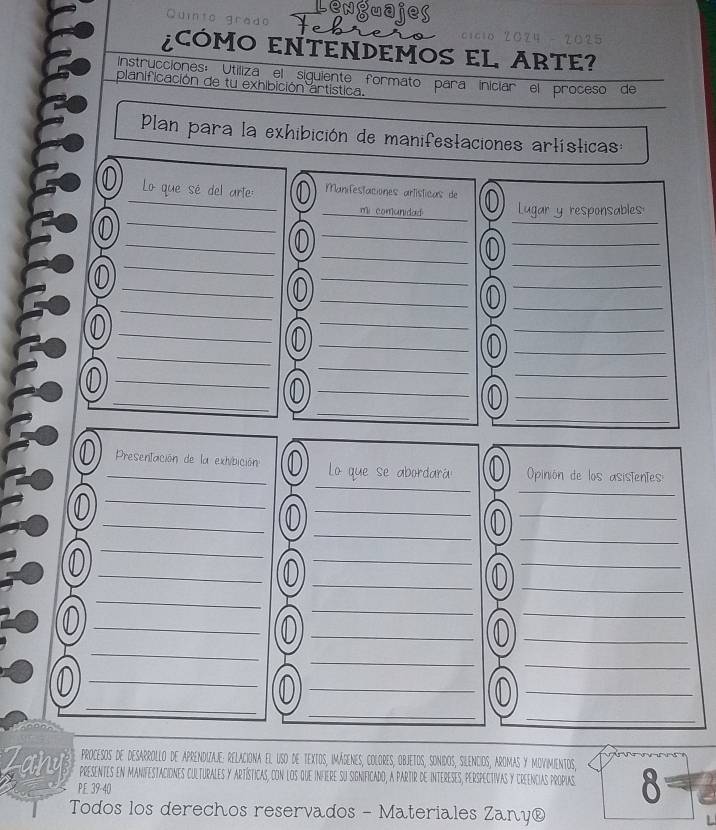 Lenguajes
Quinto grado Febrero ciclo 2024 - 2025
¿CÓMO ENTENDEMOS EL ARTE?
Instrucciones: Utiliza el siguiente formato para iniciar el proceso de
planificación de tu exhibición artística.
Plan para la exhibición de manifestaciones artísticas:
Lo que sé del arte:
Manifestaciones artísticas de
mi comunidad
Lugar y responsables:
Presentación de la exhibición:
Lo que se abordará:
Opinión de los asistentes:
Zany
PROCESOS DE DESARROLLO DE APRENDIZAJE: RELACIONA EL USO DE TEXTOS, IMÁGENES, COLORES, OBJETOS, SONIDOS, SILENCIOS, AROMAS Y MOVIMIENTOS,
PRESENTES EN MANIFESTACIONES CULTURALES Y ARTÍSTICAS, CON LOS QUE INFIERE SU SIGNIFICADO, A PARTIR DE INTERESES, PERSPECTIVAS Y CREENCIAS PROPIAS.
P.E. 39-40
8
Todos los derechos reservados - Materiales Zany®